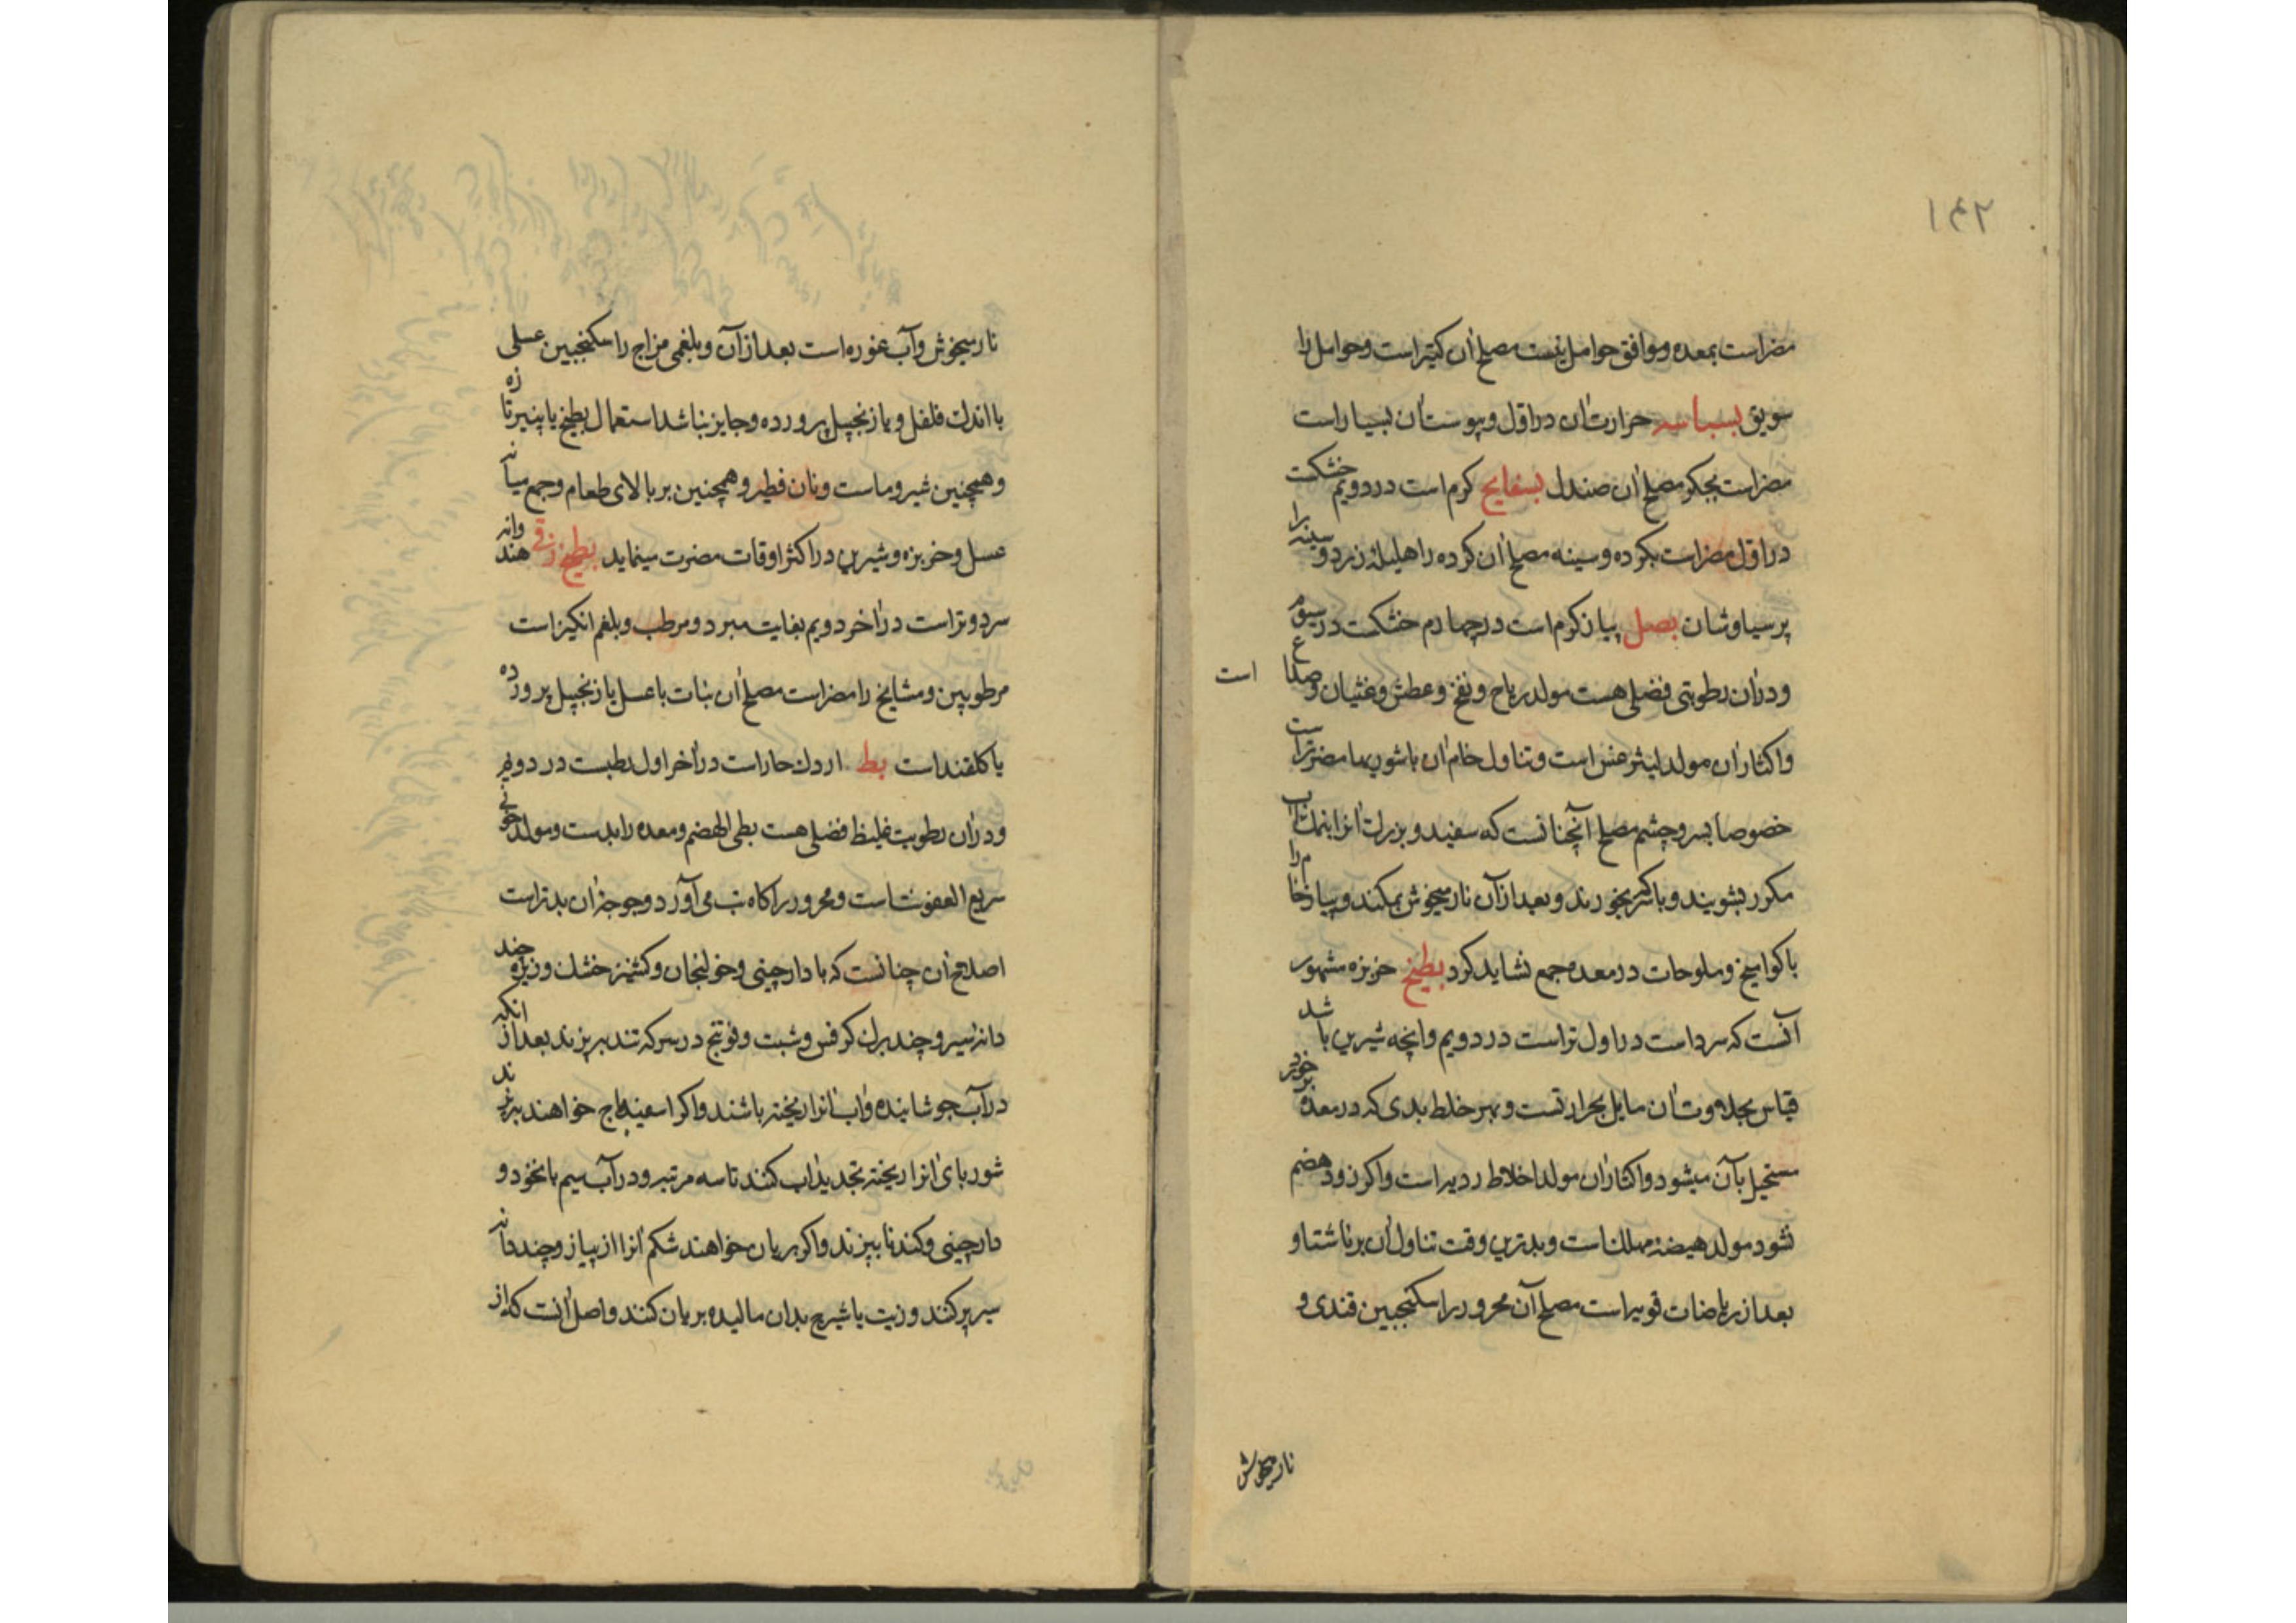 ۱۴۲
مضر است بمعده و موافق حوامل نیست مصلح آن کتیرا است و حوامل را
سویق بسباسه حرارت آن در اول و یبوست آن بسیار است
مضر است بجگر مصلح آن صندل بسفایج کرم است در دویم خشکست
در اول مضر است بکرده و سینه مصلح آن کرده را هلیله زرد و سینه را
پرسیاوشان بصل پیاز کرم است در چهارم خشکست در سوم
و در آن رطوبتی فضلی هست مولد ریاح و نفخ و عطش و غثیان و صداع است
و اکثار آن مولد لیثرغس است و تناول خام آن با شوربها مضرتر است
خصوصا بسر و چشم مصلح آنچنانست که سفید و بزرک آنرا بنمک آب
مکرر بشویند و با سرکه بخورند و بعد از آن نار میخوش بمکند و پیاز خام را
با کوامیخ و ملوحات در معده جمع نشاید کرد بطیخ خربزه مشهور
آنست که سرد است در اول تر است در دویم و انچه شیرین باشد
قیاس بحلاوت آن مایل بحرارتست و بهر خلط بدی که در معده بر خورد
مستحیل بآن میشود و اکثار آن مولد اخلاط ردیه است و اکر زود هضم
نشود مولد هیضه مهلک است و بدترین وقت تناول آن بر ناشتا و
بعد از ریاضات قویه است مصلح آن محرور را سکنجبین قندی و
نار میخوش
نار میخوش و آب غوره است بعد از آن و بلغمی مزاج را سکنجبین عسلی
با اندک فلفل و یا زنجبیل پرورده و جایز نباشد استعمال بطیخ با پنیر تازه
و همچنین شیر و ماست و نان فطیر و همچنین بر بالای طعام و جمع میانه
عسل و خربزه و شیرین در اکثر اوقات مضرت مینماید بطیخ زقی هندوانه
سرد و تر است در آخر دویم بغایت مبرد و مرطب و بلغم انکیز است
مرطوبین و مشایخ را مضر است مصلح آن نبات با عسل یا زنجبیل پرورده
یا کلقند است بط اردک حار است در آخر اول رطبست در دویم
و در آن رطوبت غلیظ فضلی هست بطی الهضم و معده را بدست و مولد خونی
سریع العفونت است و محرور را کاه تب می آورد و جوجه آن بدتر است
اصلاح آن چنانست که با دارچینی و خولنجان و کشنیز خشک و زیره چند
دانه سیر و چند برک کرفس و شبت و فوتنج در سرکه تند بپزند بعد از انکه
در آب جوشانیده و آب آنرا ریخته باشند و اکر اسفیدباج خواهند بپزند
شوربای آنرا ریخته تجدید آب کنند تا سه مرتبه و در آب سیم با نخود و
دارچینی و کندنا بپزند و اکر بریان خواهند شکم آنرا از پیاز و چند دانه
سیر پر کنند و زیت یا شیرج بدان مالیده بریان کنند و اصل آنست که از